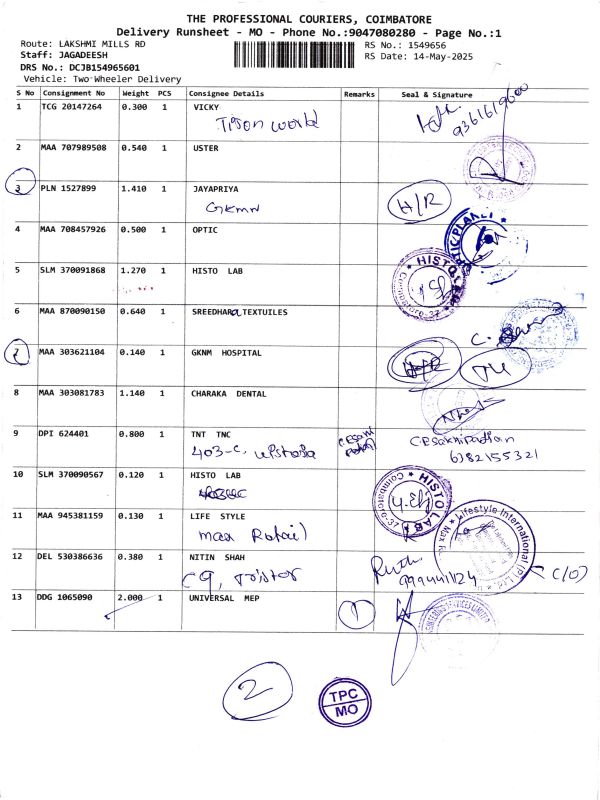 THE PROFESSIONAL COURIERS, COIMBATORE
Delivery Runsheet - MO - Phone No.:9047080280 - Page No.:1
Route: LAKSHMI MILLS RD
RS No.: 1549656
Staff: JAGADEESH
RS Date: 14-May-2025
DRS No.: DCJB154965601
Vehicle: Two Wheeler Delivery
S No Consignment No Weight PCS Consignee Details Remarks Seal & Signature
1 TCG 20147264 0.300 1 VICKY
9361619600
2 MAA 707989508 0.540 1 USTER
3 PLN 1527899 1.410 1 JAYAPRIYA
GKMN
H/R
4 MAA 708457926 0.500 1 OPTIC
5 SLM 370091868 1.270 1 HISTO LAB
HISTO LAB
Coimbatore-37
6 MAA 870090150 0.640 1 SREEDHARA TEXTUILES
7 MAA 303621104 0.140 1 GKNM HOSPITAL
8 MAA 303081783 1.140 1 CHARAKA DENTAL
9 DPI 624401 0.800 1 TNT TNC
403-C.
10 SLM 370090567 0.120 1 HISTO LAB
HISTO LAB
Coimbatore-37
11 MAA 945381159 0.130 1 LIFE STYLE
max Retail
Lifestyle International (P) Ltd
12 DEL 530386636 0.380 1 NITIN SHAH
C9,
C/O
13 DDG 1065090 2.000 1 UNIVERSAL MEP
1
2
TPC
MO